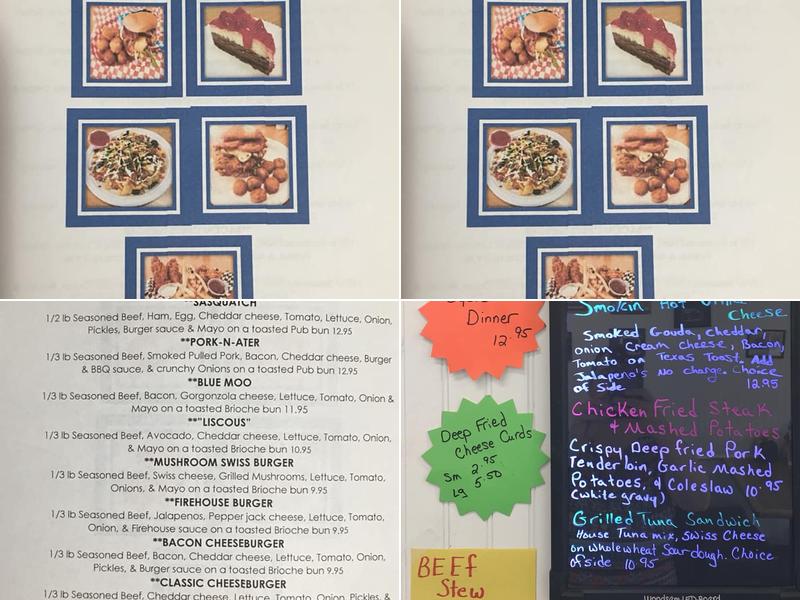 **SASQUATCH
1/2 lb Seasoned Beef, Ham, Egg, Cheddar cheese, Tomato, Lettuce, Onion,
Pickles, Burger sauce & Mayo on a toasted Pub bun 12.95
**PORK-N-ATER
1/3 lb Seasoned Beef, Smoked Pulled Pork, Bacon, Cheddar cheese, Burger
& BBQ sauce, & crunchy Onions on a toasted Pub bun 12.95
**BLUE MOO
1/3 lb Seasoned Beef, Bacon, Gorgonzola cheese, Lettuce, Tomato, Onion &
Mayo on a toasted Brioche bun 11.95
**"LISCOUS"
1/3 lb Seasoned Beef, Avocado, Cheddar cheese, Lettuce, Tomato, Onion,
& Mayo on a toasted Brioche bun 10.95
**MUSHROOM SWISS BURGER
1/3 lb Seasoned Beef, Swiss cheese, Grilled Mushrooms, Lettuce, Tomato,
Onions, & Mayo on a toasted Brioche bun 9.95
**FIREHOUSE BURGER
1/3 lb Seasoned Beef, Jalapenos, Pepper jack cheese, Lettuce, Tomato,
Onion, & Firehouse sauce on a toasted Brioche bun 9.95
**BACON CHEESEBURGER
1/3 lb Seasoned Beef, Bacon, Cheddar Cheese, Lettuce, Tomato, Onion,
Pickles, & Burger sauce on a toasted Brioche bun 9.95
**CLASSIC CHEESEBURGER
1/3 lb Seasoned Beef, Cheddar cheese, Lettuce, Tomato, Onion, Pickles, &
Dinner
12.95
Deep Fried
Cheese Curds
Sm 2.95
Lg 5.50
BEEF
Stew
Smokin Hot
Cheese
Smoked Gouda, cheddar,
onion cream cheese, Bacon,
Tomato on Texas Toast. Add
Jalapeno's No charge. Choice
of side 12.95
Chicken Fried Steak
& Mashed Potatoes
Crispy, Deep fried Pork
Tenderloin, Garlic Mashed
Potatoes, & Coleslaw 10.95
(white gravy)
Grilled Tuna Sandwich
House Tuna mix, Swiss Cheese
on Whole wheat Sourdough. Choice
of side 10.95
Woodsam LED Board